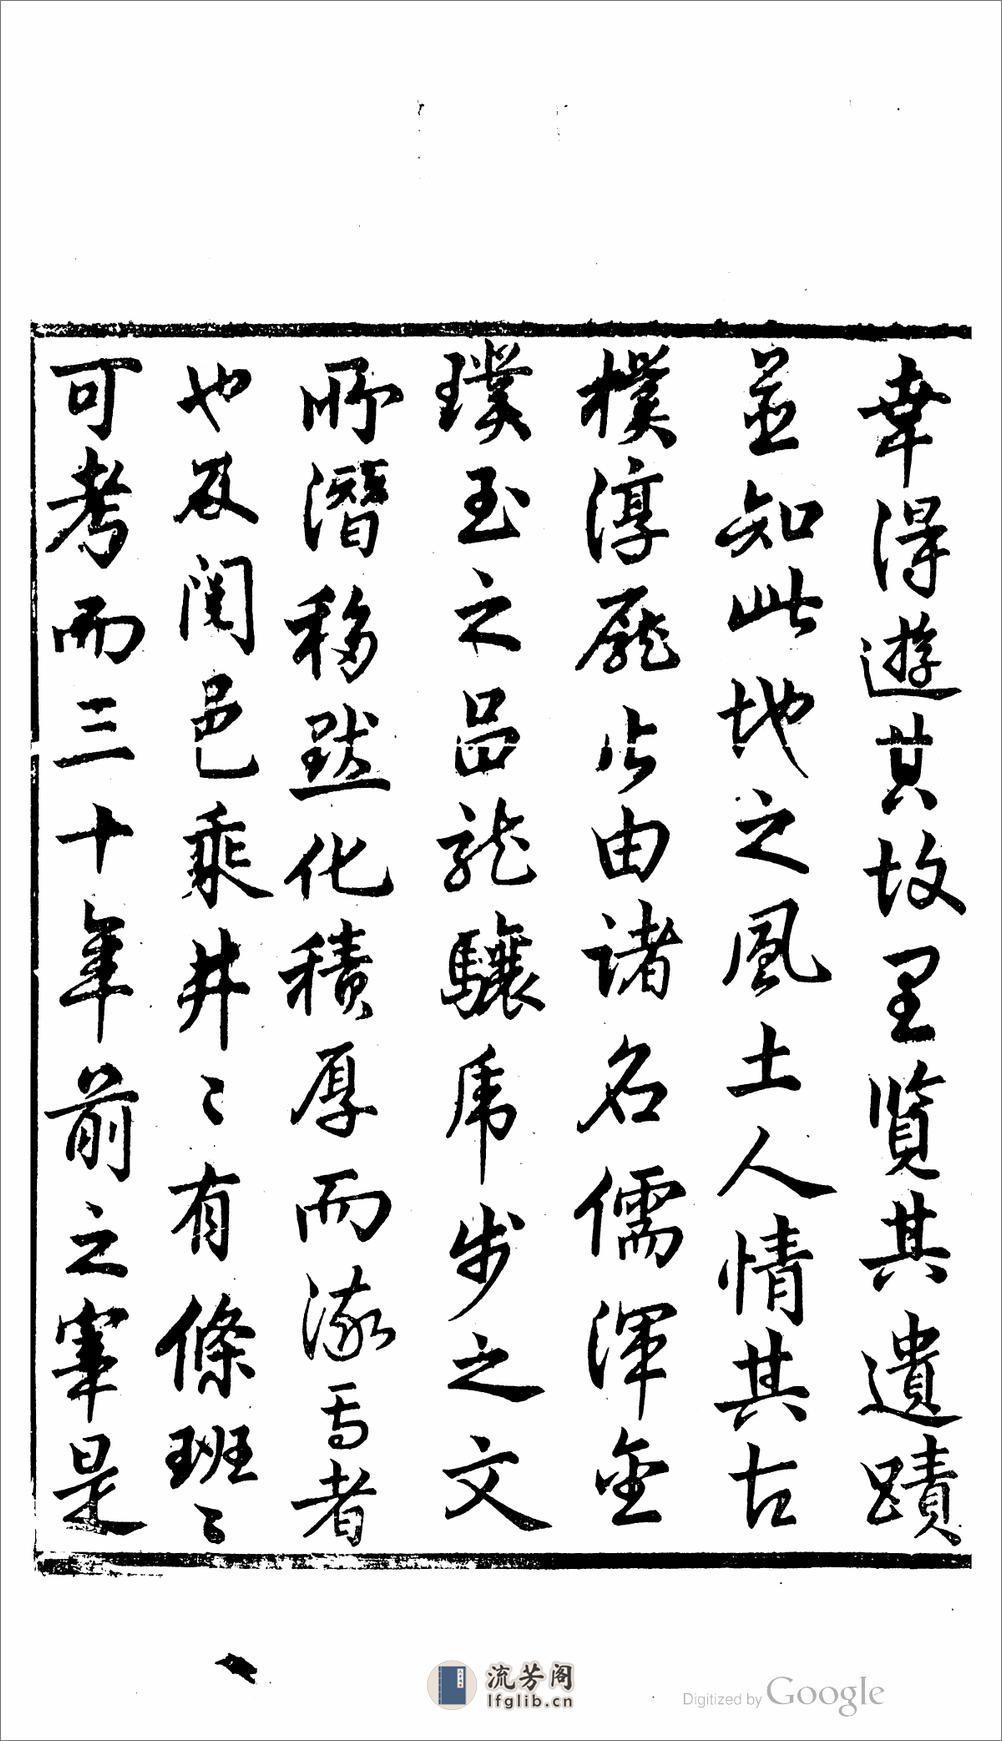 幸得遊其故里覽其遺蹟
並知此地之風土人情其古
樸淳龐必由諸名儒渾金
璞玉之品龍驤虎步之文
所潛移默化積厚而流焉者
也及閱邑乘井〻有條班〻
可考而三十年前之事是
流芳阁
lfglib.cn
Digitized by Google